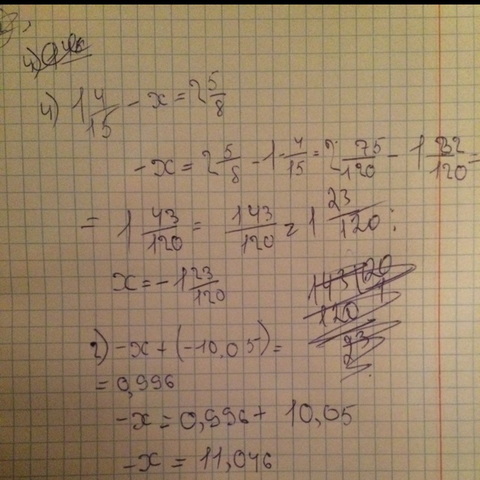 4) 1 4/15 - x = 2 5/8
-x = 2 5/8 - 1 4/15 = 2 75/120 - 1 32/120 =
= 1 43/120 = 143/120 = 1 23/120;
x = -1 23/120
143 | 120
120 | 1
23
2) -x + (-10.05) =
= 0,996
-x = 0,996 + 10,05
-x = 11,046